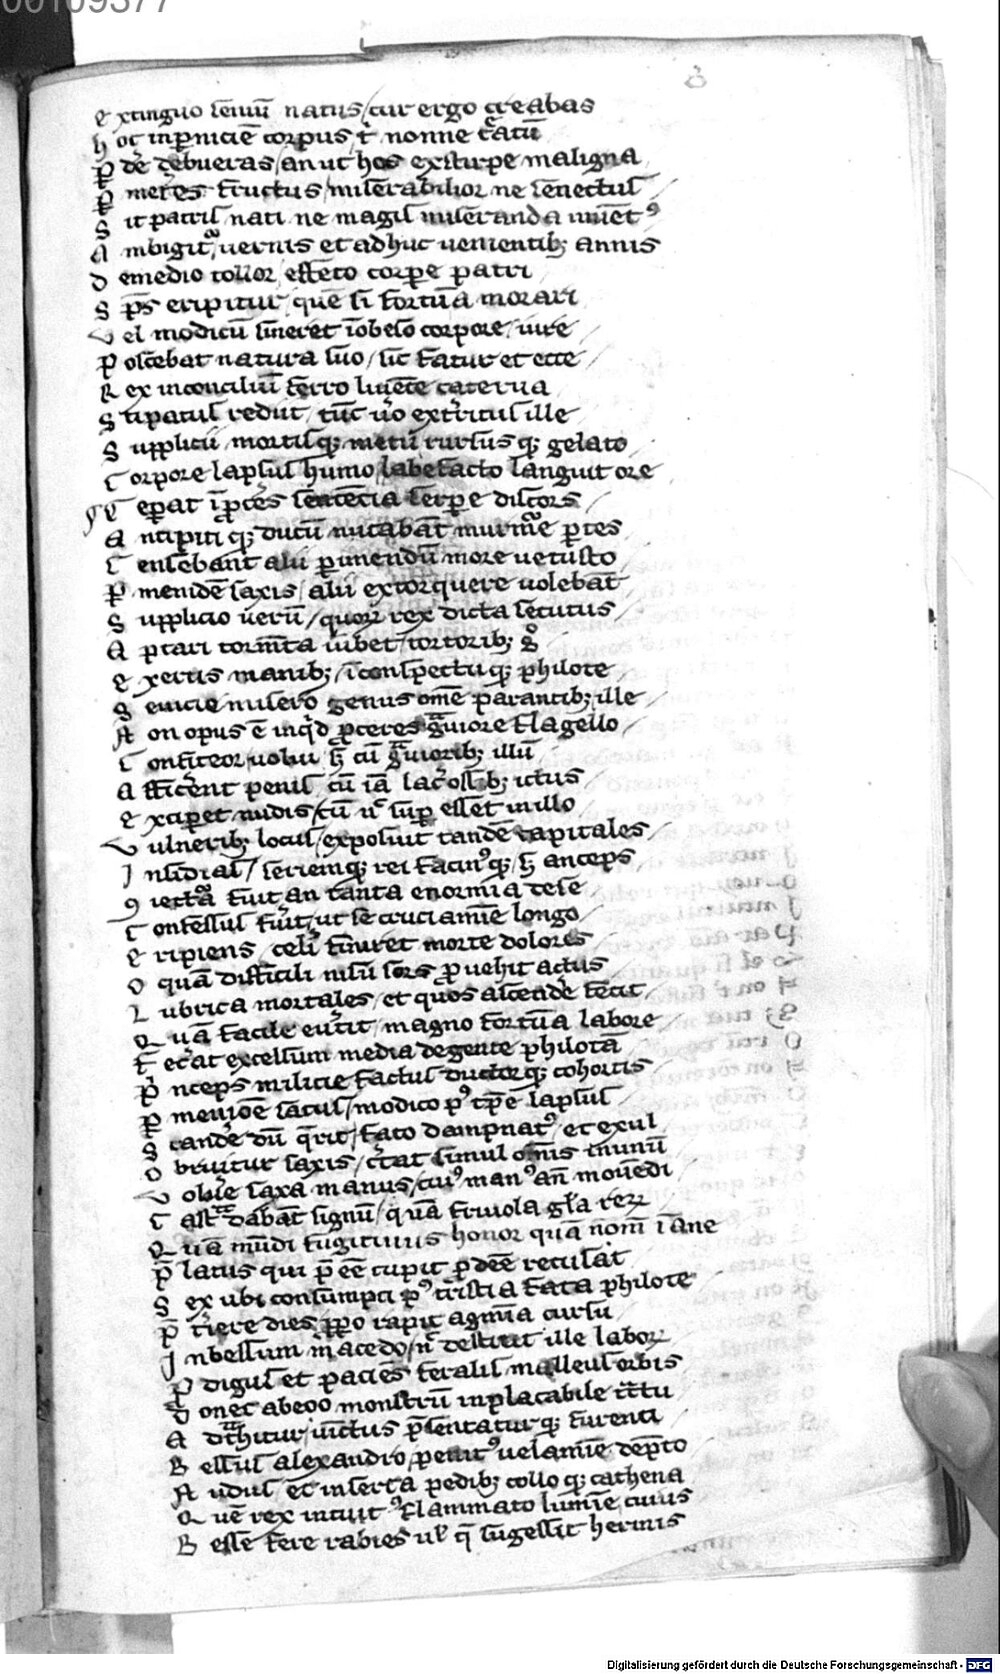 00109377
extinguo seniū natus / cur ergo creabas
hoc in ꝑniciē corpus
dē debueras / an ut hos exsturpe maligna
meteres fructus / miserabilior ne senectus /
Sit patris nati ne magis miseranda iuuent᷒
Ambigitᷓ uernis et adhuc uenientib; annis
demedio tollor / effeto corꝑe patri /
Sp̄s eripitur / quē si fortūa morari /
Vel modicū sineret ī obeso corpore / iure /
Poscebat natura suo / sic fatur et ecce /
Rex inconciliū ferro lucēte caterua
Stipatus redut / tūc ū̓o exterritus ille /
Suppliciū mortisq; metū rursusq; gelato
Corpore lapsus humo labefacto languit ore /
Ceꝑat ī ꝓceres sentēcia serꝑe discors /
Ancipitiq; ducū nutabāt murmͣe ꝑtes
Censebant alii ꝑimendū more uetusto
ꝑmenidē saxis / alii extorquere uolebāt
Supplicio uerū / quoꝝ rex dicta secutus /
Aptari tormēta iubet / tortorib; gͦ
exertis manib; / ī conspectuq; philote /
Seuicie misero genus omē parantib; / ille /
Non opus ē inq̇d ꝓceres gͣuiore flagello /
Confiteor / uolui h̄ cū gͣuiorib; illū
Afficerent penis / cū iā lac̓ossib; ictus /
exciꝑet nudis / cū n̄ suꝑ esset in illo
Vulnerib; locus / exposuit tandē capitales /
Insidias / seriemq; rei facin᷒q; / h̄ anceps
ꝯiectᷓa fuit an tanta enormia de se
Confessus fu̓it / ut se cruciamīe longo /
eripiens / celi finiret morte dolores
O quā difficili nisu sors ꝓuehit actus
Lubrica mortales / et quos ascende̓ fecit /
Quā facile eu̓tit / magno fortūa labore /
fec̓at excelsum media de gente philotā
pͥnceps milicie factus ductorq; cohortis /
ꝑmenione satus / modico p᷒ tp̄e lapsus /
Scande̓ dū q̄rit / fato dampnat᷒ et exul
Obruitur saxis / c̓tat simul oīnis inunū
Voluere saxa manus / cui᷒ man᷒ an̄ mouēdi /
Castͣ dabāt signū / quā friuola gl̄a reꝝ
Quā mūdi fugitiuus honor quā nomē iāne
p̄latus qui p̄ eē cupit ꝓdeē recusāt
Sex ubi consumpti p᷒ tristia fata philote /
p̄teriere dies / ꝓpero rapit agmīa cursu
Inbessum macedo / n̄ destitit ille laboꝝ
ꝓdigus et paciēs feralis malleus orbis
Donec ab eoo monstrū inplacabile ritu
Adtͣhitur / uictus p̄sentaturq; furenti
Bessus alexandro / penit᷒ uelamīe dēpto
Nudus et inserta pedib; colloq; cathena
Quē rex intuit᷒ flammato lumīe cuius
Besse fere rabies ul̓ q̄ sugessit herinis
Digitalisierung gefördert durch die Deutsche Forschungsgemeinschaft - DFG